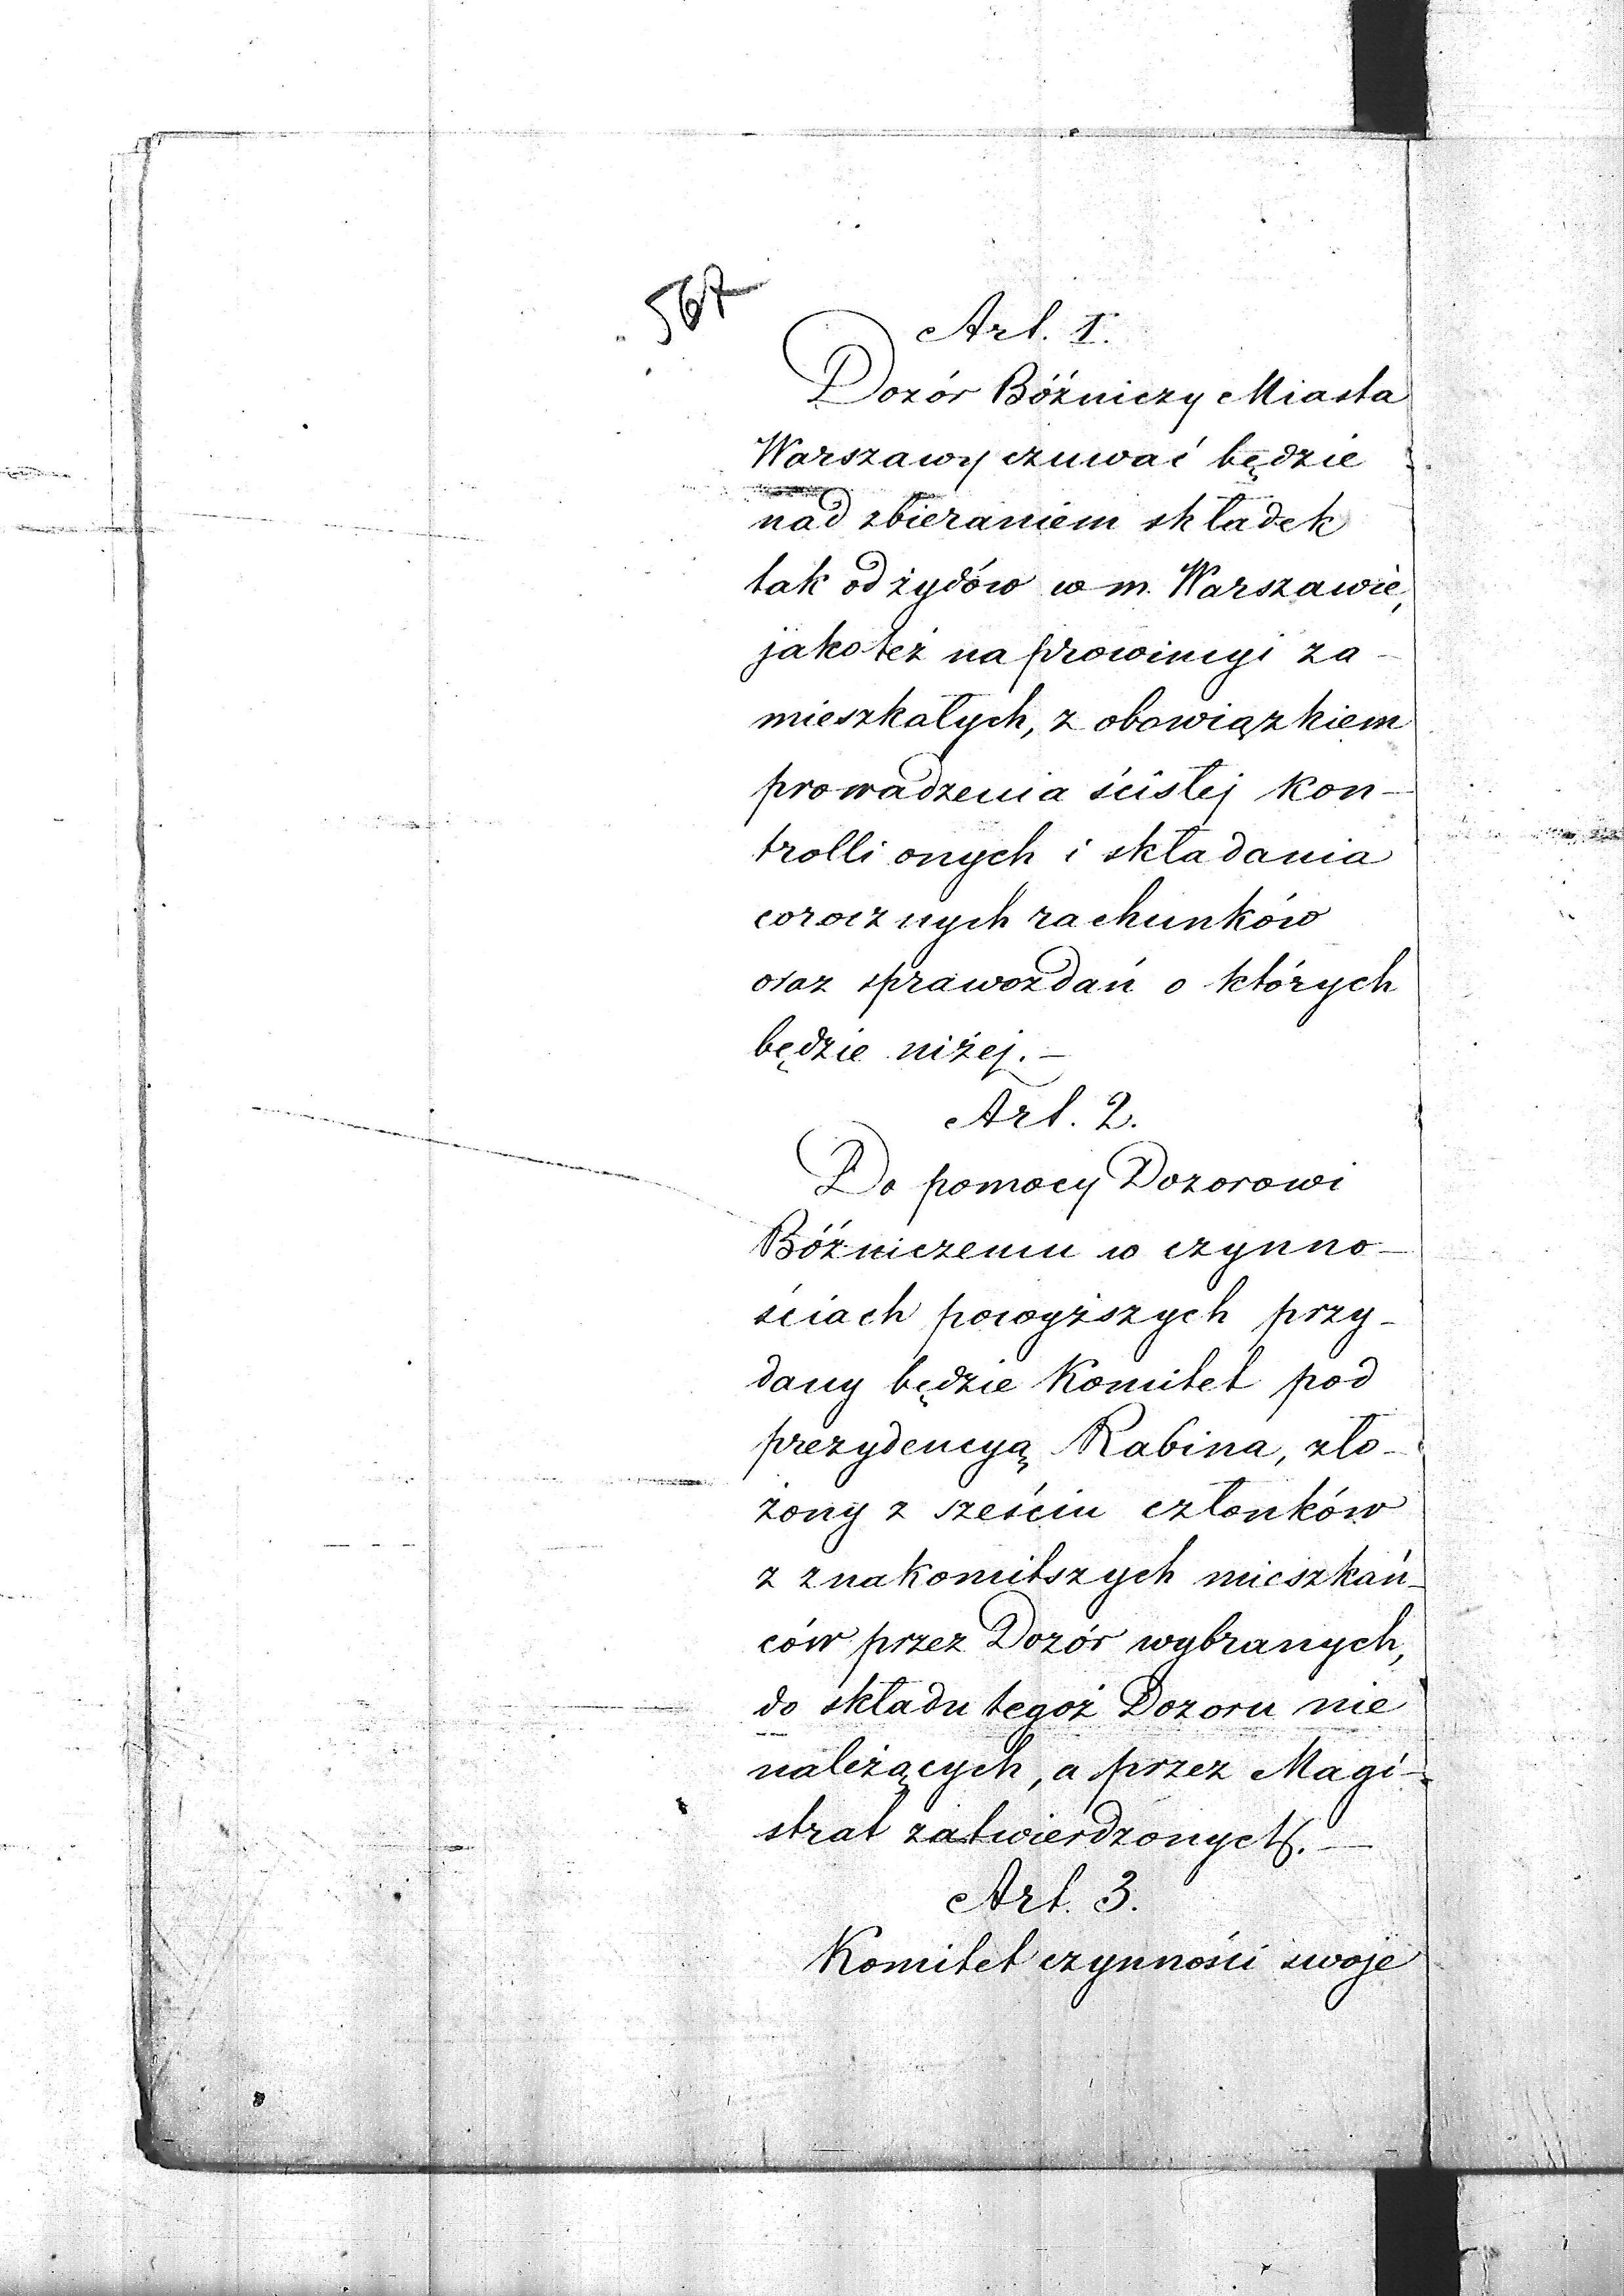 567
Art. 1.
Dozór Bóźniczy Miasta
Warszawy czuwać będzie
nad zbieraniem składek
tak od żydów w m. Warszawie,
jako też na prowincyi za-
mieszkałych, z obowiązkiem
prowadzenia ścisłej kon-
trolli onych i składania
corocznych rachunków
oraz sprawozdań o których
będzie niżej. –
Art. 2.
Do pomocy Dozorowi
Bóźniczemu w czynno-
ściach powyższych przy-
dany będzie Komitet pod
prezydencyą Rabina, zło-
żony z sześciu członków
z znakomitszych mieszkań-
ców przez Dozór wybranych,
do składu tegoż Dozoru nie
należących, a przez Magi-
strat zatwierdzonych. –
Art. 3.
Komitet czynności swoje